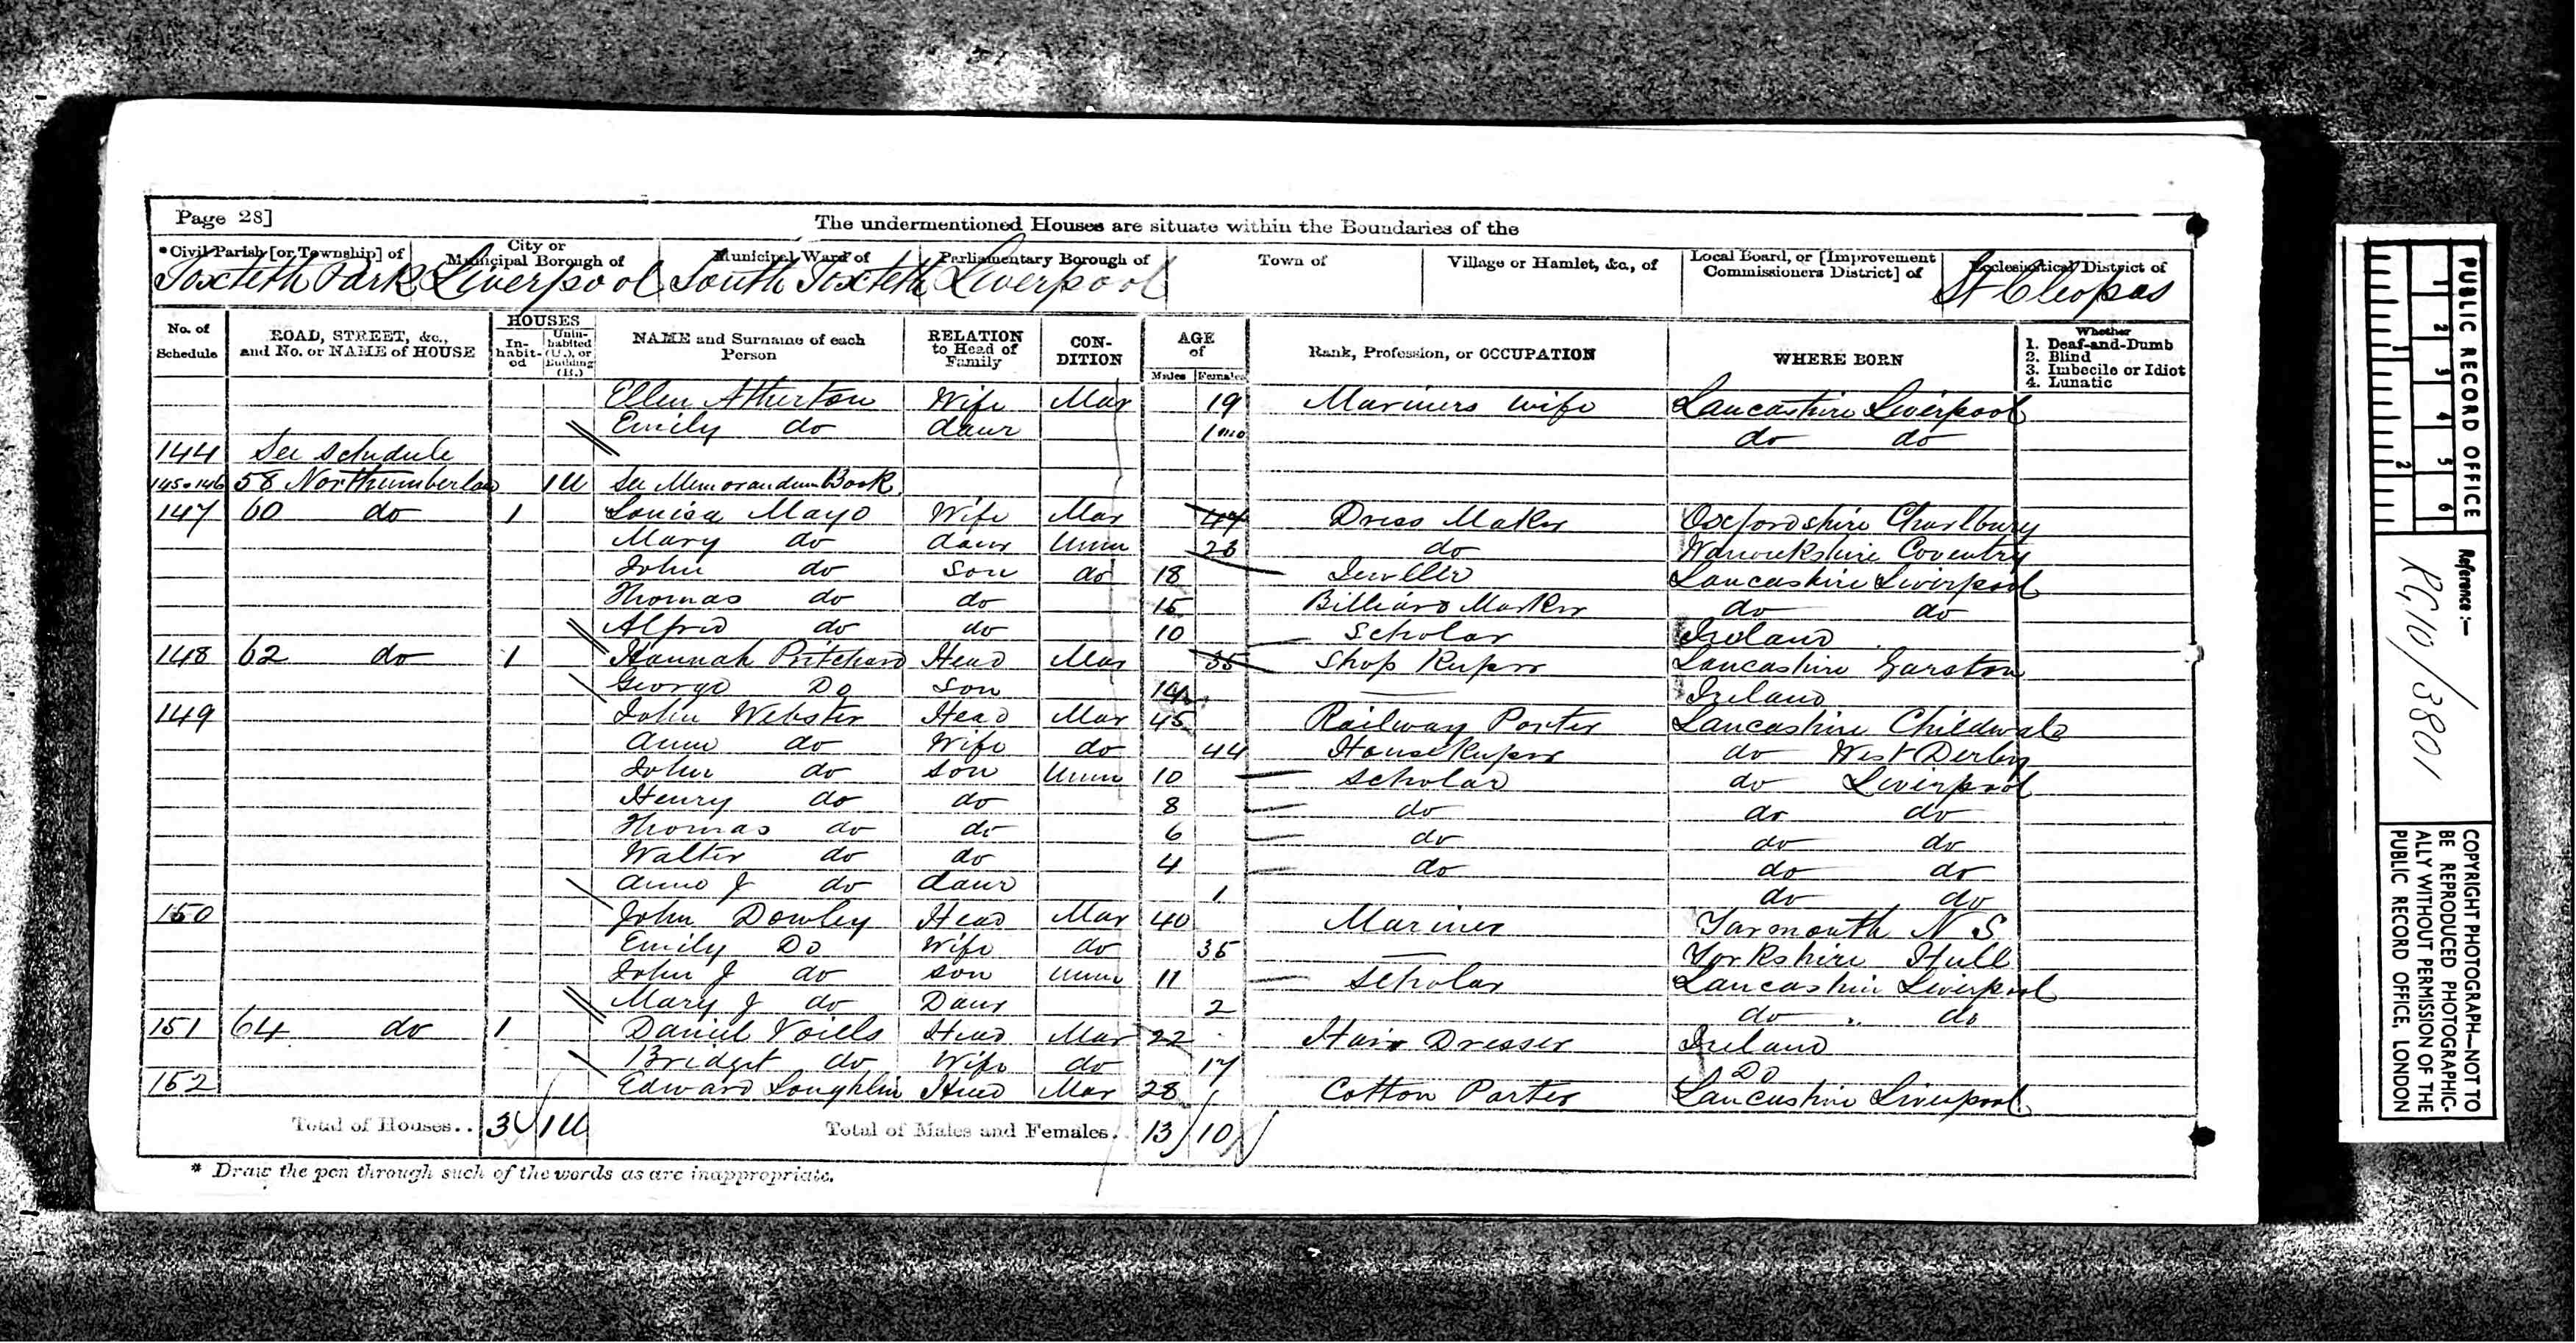 Page 28]
The undermentioned Houses are situate within the Boundaries of the
*Civil Parish [or Township] of City or Municipal Borough of Municipal Ward of Parliamentary Borough of Town of Village or Hamlet, &c., of Local Board, or [Improvement Commissioners District] of Ecclesiastical District of
Toxteth Park Liverpool South Toxteth Liverpool St Cleopas
No. of Schedule ROAD, STREET, &c., and No. or NAME of HOUSE HOUSES In-habit-ed Unin-habited (U.), or Building (B.) NAME and Surname of each Person RELATION to Head of Family CON-DITION AGE of Males Females Rank, Profession, or OCCUPATION WHERE BORN Whether 1. Deaf-and-Dumb 2. Blind 3. Imbecile or Idiot 4. Lunatic
Ellen Atherton Wife Mar 19 Mariners Wife Lancashire Liverpool
Emily do daur 1 mo do do
144 See Schedule
145.146 58 Northumberlan 1U See Memorandum Book
147 60 do 1 Louisa Mayo Wife Mar 47 Dress Maker Oxfordshire Charlbury
Mary do daur Unm 23 do Warwickshire Coventry
John do Son do 18 Jeweller Lancashire Liverpool
Thomas do do 15 Billiard Marker do do
Alfred do do 10 Scholar Ireland
148 62 do 1 Hannah Pritchard Head Mar 35 Shop Keeper Lancashire Garston
George Do Son Ireland
149 John Webster Head Mar 45 Railway Porter Lancashire Childwale
Anne do Wife do 44 House Keeper do West Derby
John do Son Unm 10 Scholar do Liverpool
Henry do do 8 do do do
Thomas do do 6 do do do
Walter do do 4 do do do
Anne J do daur 1 do do
150 John Dowley Head Mar 40 Mariner Yarmouth N S
Emily Do Wife do 35 Yorkshire Hull
John J do Son Unm 11 Scholar Lancashire Liverpool
Mary J do Daur 2 do do
151 64 do 1 Daniel Voills Head Mar 22 Hair Dresser Ireland
Bridget do Wife do 17 Do
152 Edward Loughlin Head Mar 28 Cotton Porter Lancashire Liverpool
Total of Houses.. 3 1U Total of Males and Females.. 13 10
* Draw the pen through such of the words as are inappropriate.
PUBLIC RECORD OFFICE
1 2 3 4 5 6
1 2
Reference:-
RG10/3801
COPYRIGHT PHOTOGRAPH—NOT TO
BE REPRODUCED PHOTOGRAPHIC-
ALLY WITHOUT PERMISSION OF THE
PUBLIC RECORD OFFICE, LONDON